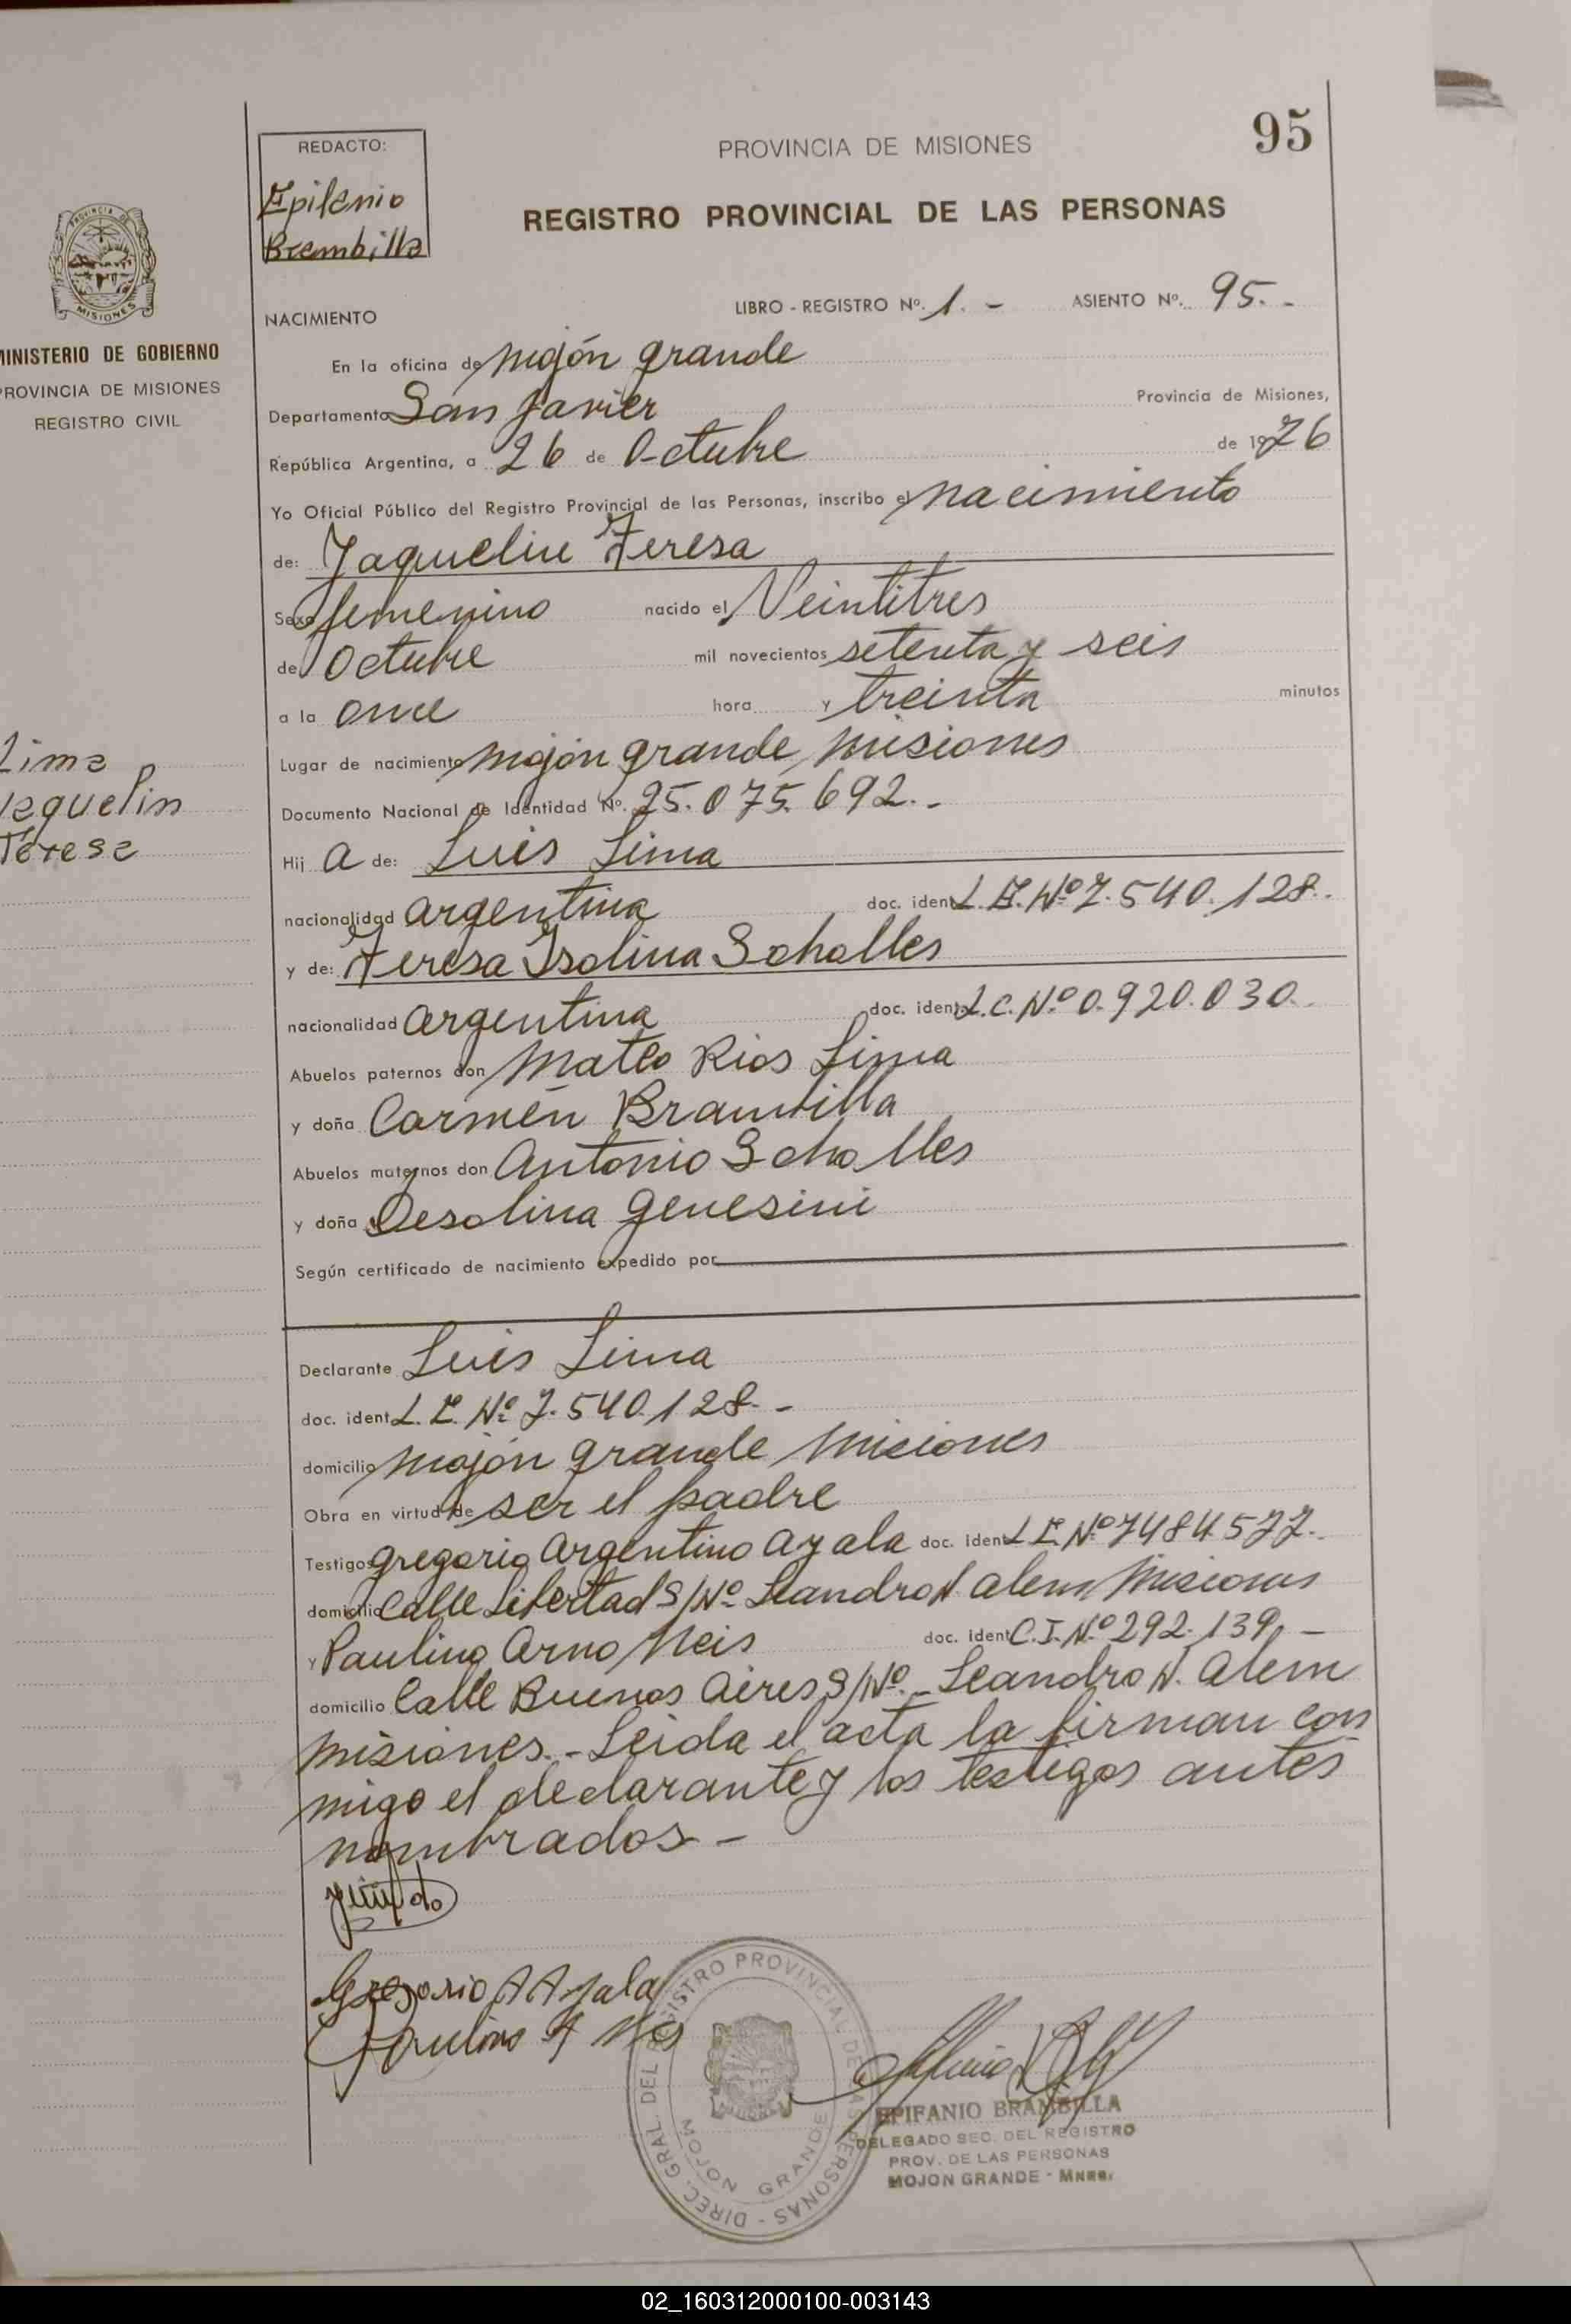 95
REDACTO:
Epifanio
Brambilla
PROVINCIA DE MISIONES
REGISTRO PROVINCIAL DE LAS PERSONAS
PROVINCIA DE
MISIONES
MINISTERIO DE GOBIERNO
PROVINCIA DE MISIONES
REGISTRO CIVIL
Lima
Jaquelin
Teresa
NACIMIENTO
LIBRO - REGISTRO Nº. 1. - ASIENTO Nº. 95. -
En la oficina de Mojón grande
Departamento San Javier Provincia de Misiones,
República Argentina, a 26 de Octubre de 1976
Yo Oficial Público del Registro Provincial de las Personas, inscribo el nacimiento
de: Jaquelin Teresa
Sexo femenino nacido el Veintitres
de Octubre mil novecientos setenta y seis
a la once hora y treinta minutos
Lugar de nacimiento Mojón grande, Misiones
Documento Nacional de Identidad Nº. 25.075.692.-
Hij a de: Luis Lima
nacionalidad argentina doc. ident L.E. Nº 7.540.128.
y de: Teresa Isolina Scholles
nacionalidad argentina doc. ident. L.C. Nº 0.920.030.
Abuelos paternos don Mateo Rios Lima
y doña Carmen Brambilla
Abuelos maternos don Antonio Scholles
y doña Desolina Genesini
Según certificado de nacimiento expedido por
Declarante Luis Lima
doc. ident L.E. Nº 7.540.128. -
domicilio Mojón grande Misiones
Obra en virtud de ser el padre
Testigos Gregorio Argentino Ayala doc. ident L E. Nº 7484577.
domicilio Calle Libertad S/Nº Leandro N alem Misiones
y Paulino Arno Neis doc. ident C.I. Nº 292.139. -
domicilio Calle Buenos Aires S/Nº. - Leandro N. Alem
Misiones. - Leida el acta la firman con
migo el declarante y los testigos antes
nombrados -
Gregorio A Ayala
Paulino A Neis
DIREC. GRAL. DEL REGISTRO PROVINCIAL DE LAS PERSONAS -
MOJON GRANDE
EPIFANIO BRAMBILLA
DELEGADO SEC. DEL REGISTRO
PROV. DE LAS PERSONAS
MOJON GRANDE - Mnes.
02_160312000100-003143